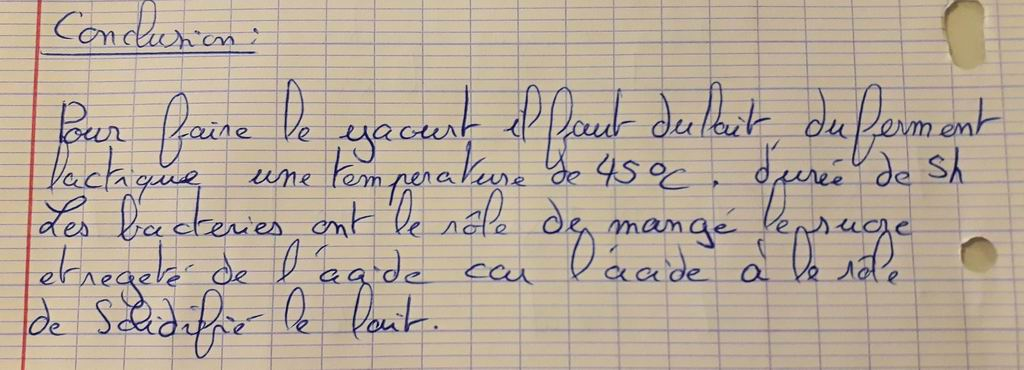 Conclusion :
Pour faire le yaourt il faut du lait, du ferment
lactique, une température de 45°C, durée de 5h
Les bacteries ont le rôle de mangé le sucre
et regeté de l'agide car l'acide à le rôle
de Solidifié le lait.